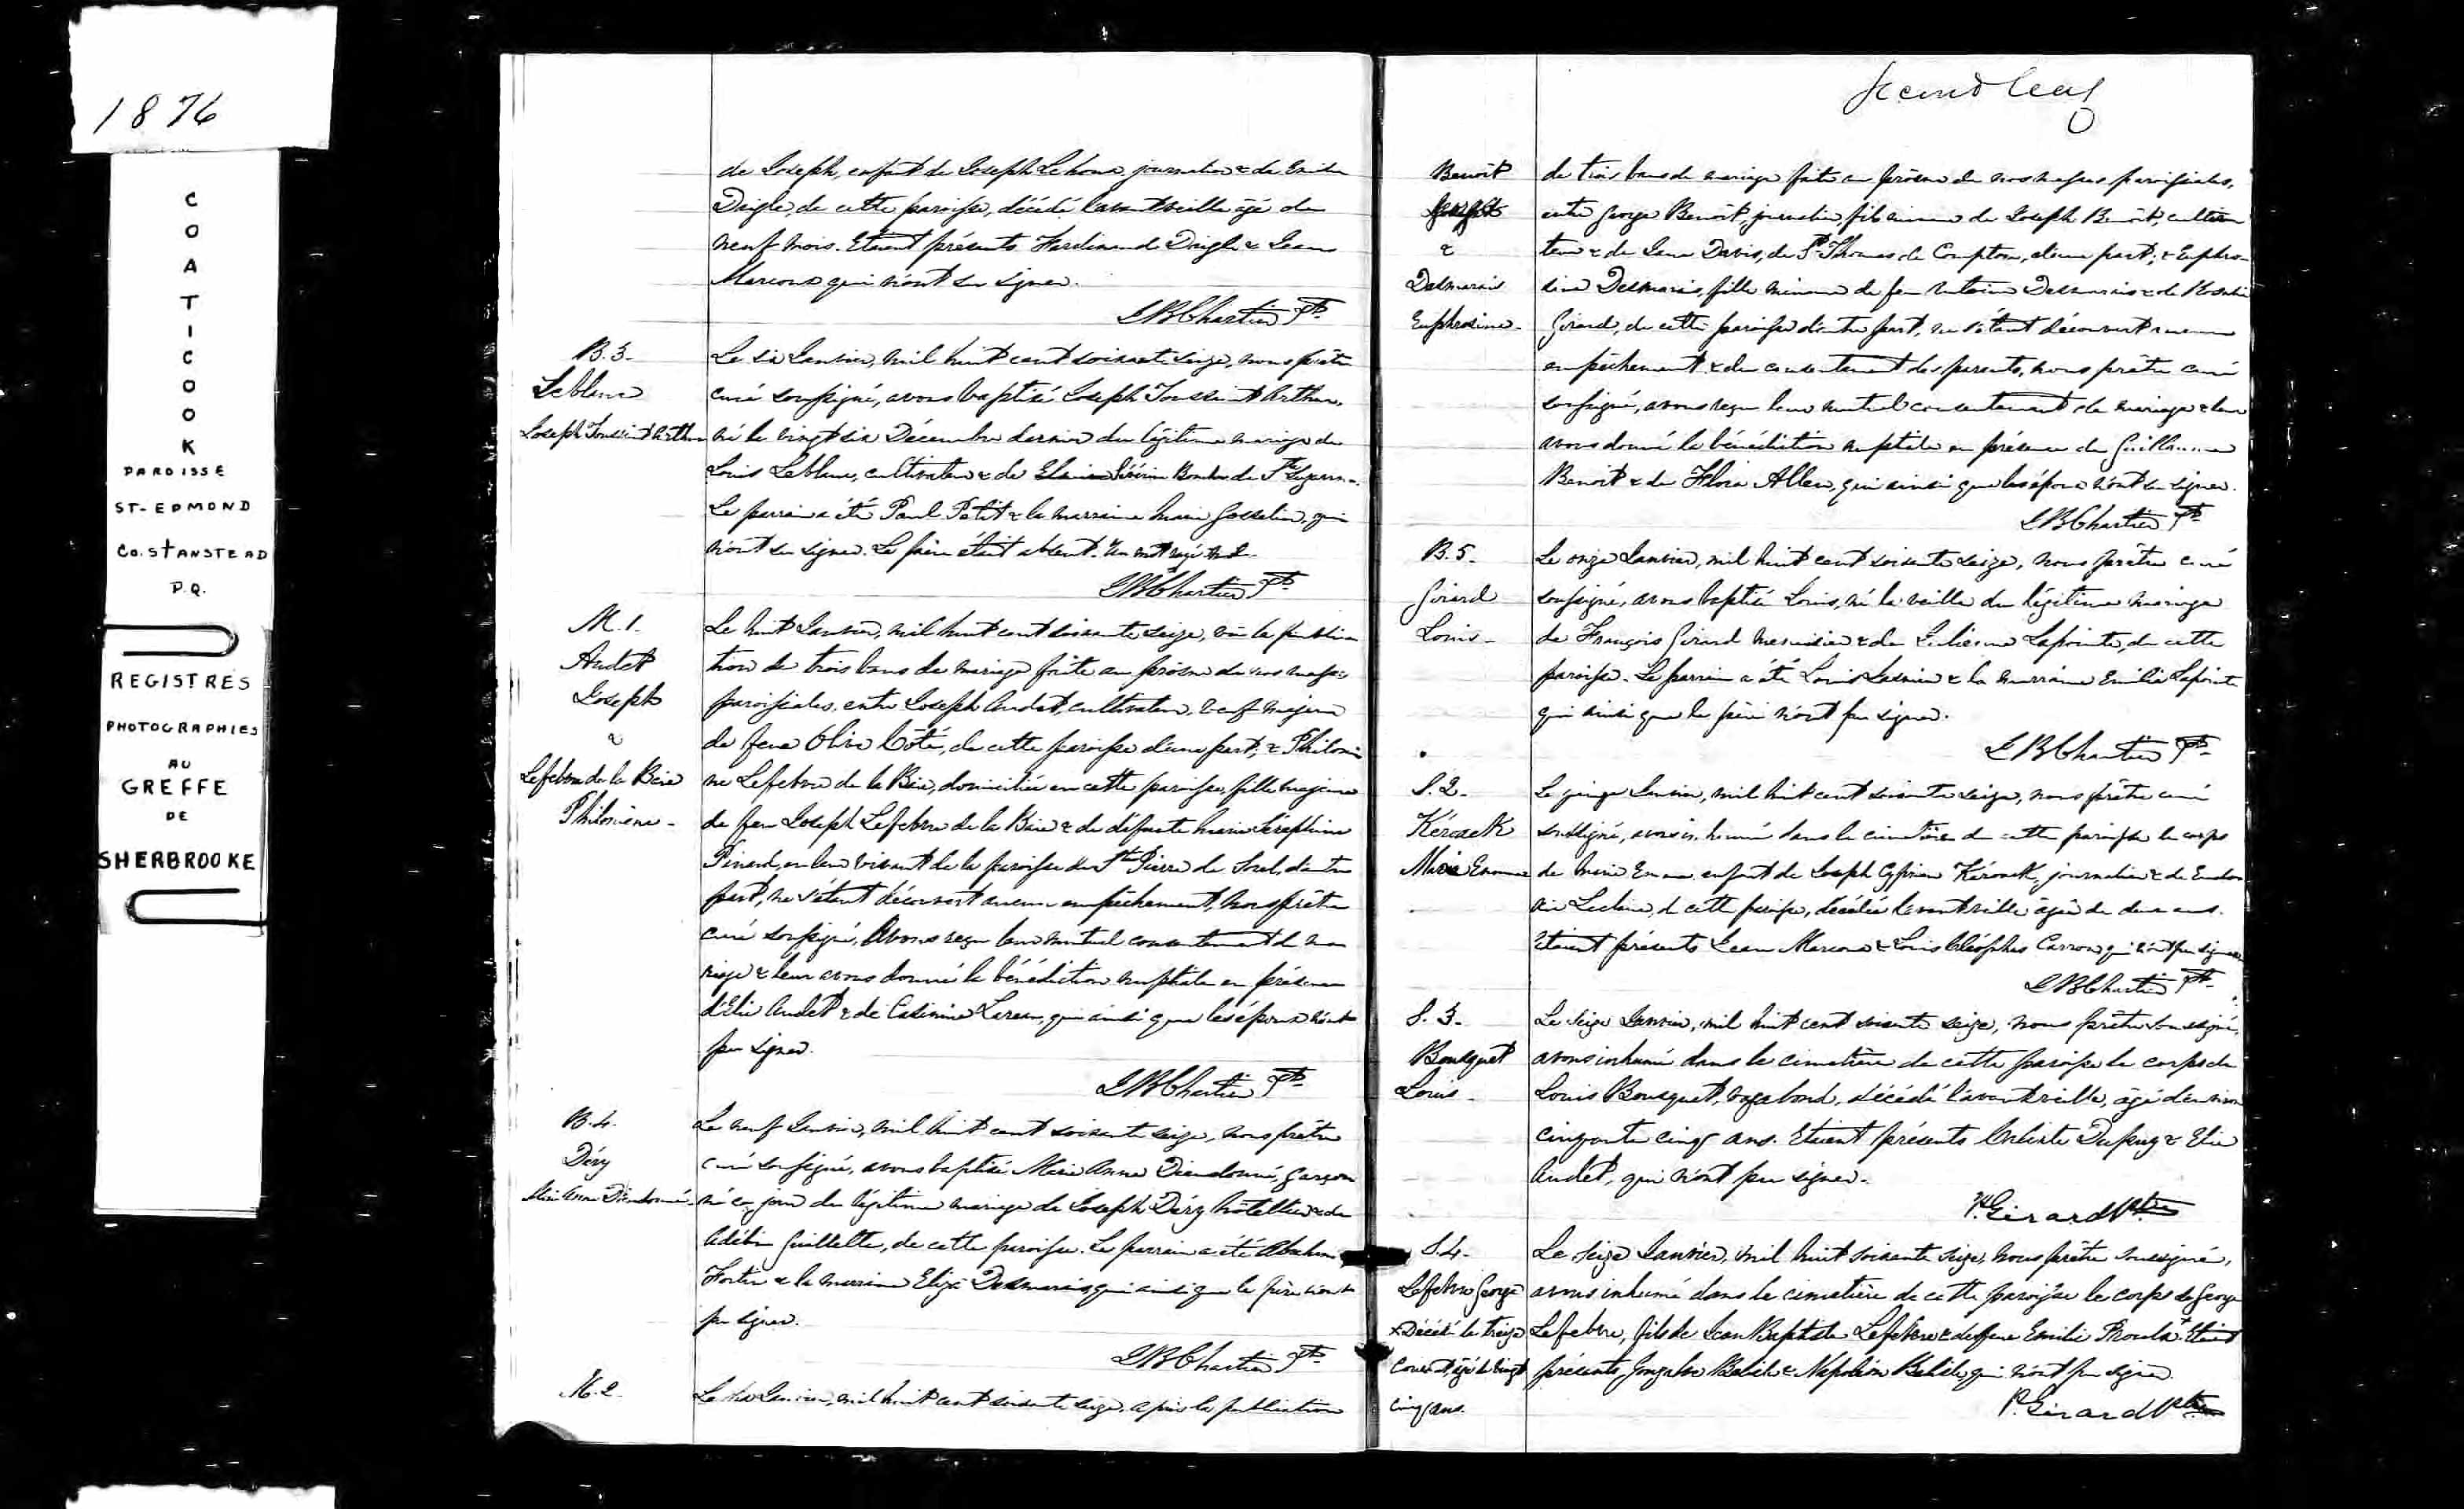 1876
COATICOOK
PAROISSE
ST-EDMOND
Co. STANSTEAD
P.Q.
REGISTRES
PHOTOGRAPHIES
AU
GREFFE
DE
SHERBROOKE
de Joseph, enfant de Joseph journalier & de
Daigle, de cette paroisse, décédé l'avant veille âgé de
neuf mois. Etaient présents Ferdinand Daigle & Jean
Marcoux qui n'ont su signer.
J B Chartier Ptre
B. 3.
Leblanc
Joseph Toussaint Arthur
Le six Janvier, mil huit cent soixante seize, nous prêtre
curé soussigné, avons baptisé Joseph Toussaint Arthur,
né le vingt six Décembre dernier du légitime mariage de
Louis Leblanc, cultivateur & de
Le parrain a été Paul Petit & la marraine Marie Gosselin, qui
n'ont su signer. Le père était absent. Un mot rayé nul.
J B Chartier Ptre
M. 1.
Audet
Joseph
&
Lefebvre de la Baie
Philomène -
Le huit Janvier, mil huit cent soixante seize, vu la publica
tion de trois bans de mariage faite au prône de nos messes
paroissiales, entre Joseph Audet, cultivateur, veuf majeur
de feue Olive Côté, de cette paroisse d'une part, & Philomè
ne Lefebvre de la Baie, domiciliée en cette paroisse, fille majeure
de feu Joseph Lefebvre de la Baie & de défunte Marie Séraphine
Pinard, en leur vivant de la paroisse de St Pierre de Sorel, d'autre
part, ne s'étant découvert aucun empêchement, nous prêtre
curé soussigné, avons reçu leur mutuel consentement de ma
riage & leur avons donné la bénédiction nuptiale en présence
d'Elie Audet & de Casimir Lareau, qui ainsi que les époux n'ont
pu signer.
J B Chartier Ptre
B. 4.
Déry
Marie Anne Dieudonné
Le neuf Janvier, mil huit cent soixante seize, nous prêtre
curé soussigné, avons baptisé Marie Anne Dieudonné, garçon
né ce jour du légitime mariage de Joseph Déry hôtellier & de
Adélia Guillette, de cette paroisse. Le parrain a été Abraham
Fortin & la marraine Eliza Desmarais, qui ainsi que le père n'ont
pu signer.
J B Chartier Ptre
M. 2.
Le dix Janvier, mil huit cent soixante seize, après la publication
second leaf
Benoit
&
Desmarais
Euphrosine -
de trois bans de mariage faite au prône de nos messes paroissiales,
entre George Benoit, journalier, fils mineur de Joseph Benoit, cultiva
teur & de Jane Davis, de St Thomas de Compton, d'une part, & Euphro-
sine Desmarais, fille mineure de feu Antoine Desmarais & de Rosalie
Girard, de cette paroisse d'autre part, ne s'étant découvert aucun
empêchement & du consentement des parents, nous prêtre curé
soussigné, avons reçu leur mutuel consentement de mariage & leur
avons donné la bénédiction nuptiale en présence de Guillaume
Benoit & de Flora Allen, qui ainsi que les époux n'ont su signer.
J B Chartier Ptre
B. 5.
Girard
Louis -
Le onze Janvier, mil huit cent soixante seize, nous prêtre curé
soussigné, avons baptisé Louis, né la veille du légitime mariage
de François Girard menuisier & de Lapointe, de cette
paroisse. Le parrain a été Louis & la marraine Emilie Lapointe
qui ainsi que le père n'ont pu signer.
J B Chartier Ptre
S. 2.
Kérouack
Marie Emma
Le quinze Janvier, mil huit cent soixante seize, nous prêtre curé
soussigné, avons inhumé dans le cimetière de cette paroisse le corps
de Marie Emma enfant de Joseph Cyprien Kérouack, journalier & de
Leclaire, de cette paroisse, décédée l'avant veille âgée de deux ans.
Etaient présents Jean Marcoux & Louis Cléophas Carron qui n'ont pu signer.
J B Chartier Ptre
S. 3.
Bousquet
Louis -
Le seize Janvier, mil huit cent soixante seize, nous prêtre soussigné,
avons inhumé dans le cimetière de cette paroisse le corps de
Louis Bousquet, vagabond, décédé l'avant veille, âgé d'environ
cinquante cinq ans. Etaient présents Dupuy & Elie
Audet, qui n'ont pu signer.
P. Girard Ptre
S. 4.
Lefebvre George
x Décédé le treize
courant, âgé de vingt
cinq ans.
Le seize Janvier, mil huit soixante seize, nous prêtre soussigné,
avons inhumé dans le cimetière de cette paroisse le corps de George
Lefebvre, fils de Jean Baptiste Lefebvre & de feue Emilie Proulx x Etaient
présents Gonzalve & Napoléon qui n'ont pu signer.
P. Girard Ptre